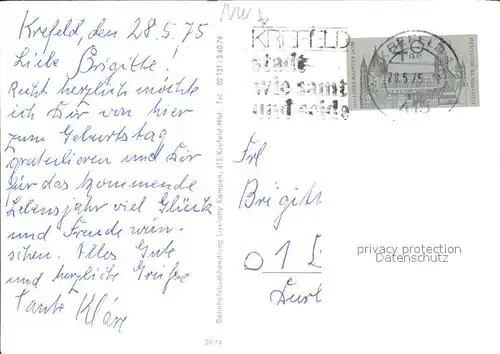 Krefeld, den 28.5.75
Liebe Brigitte!
Recht herzlich möchte
ich Dir von hier
zum Geburtstag
gratulieren und Dir
für das kommende
Lebensjahr viel Glück
und Freude wün-
schen. Alles Gute
und herzliche Grüße
Tante Kläre
39/74
Bahnhofsbuchhandlung Lieselotte Kampen, 415 Krefeld-Hbf. Tel. 02151-3 40 74
NW
KREFELD
stadt
wie samt
und seide
KREFELD
28.5.75
415
Frl
Brigitt
O 1
privacy protection
Datenschutz